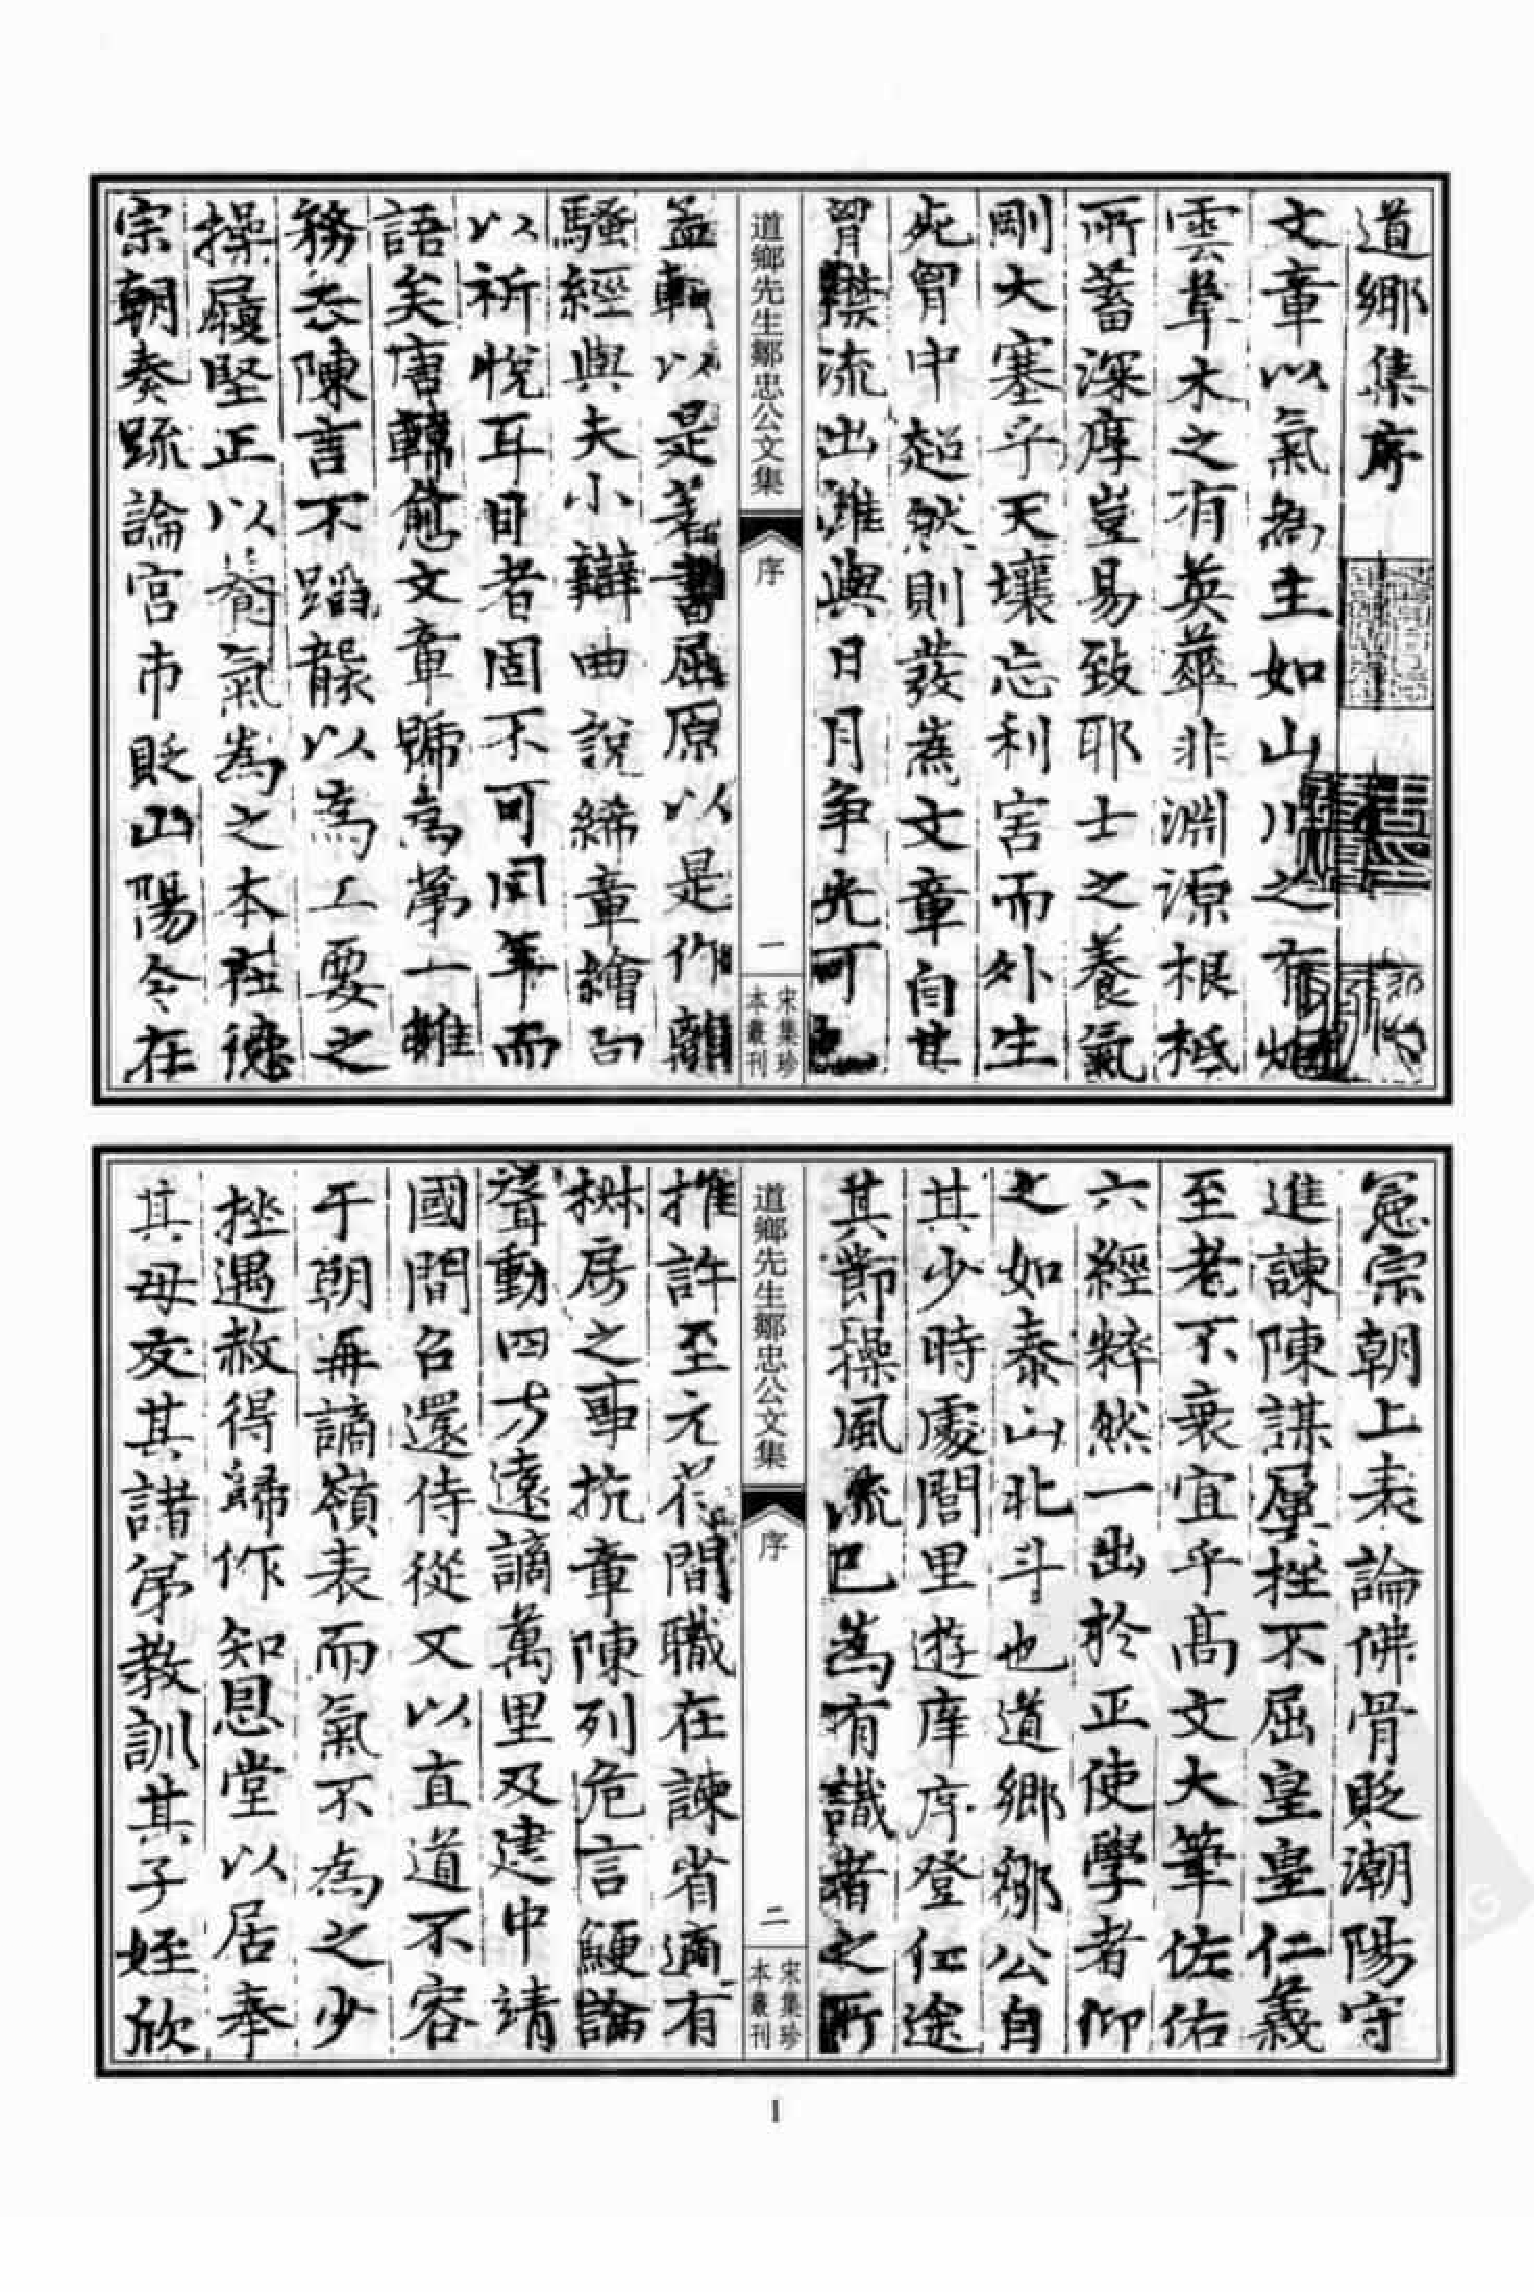 道鄉集序
文章以氣為主如山川之有烟
雲草木之有英華非淵源根柢
所蓄深厚豈易致耶士之養氣
剛大塞乎天壤忘利害而外生
死胷中超然則發爲文章自其
胷襟流出雖與日月争光可也
孟軻以是著書屈原以是作離
騷經與夫小辯曲說絺章繪句
以祈悅耳目者固不可同年而
語矣唐韓愈文章號為第一雖
務去陳言不蹈襲以為工要之
操履堅正以養氣為之本在德
宗朝奏疏論宮市貶山陽令在
道鄉先生鄒忠公文集
序
一
宋集珍
本叢刊
憲宗朝上表論佛骨貶潮陽守
進諫陳謀屢挫不屈皇皇仁義
至老不衰宜乎高文大筆佐佑
六經粹然一出於正使學者仰
之如泰山北斗也道鄉鄒公自
其少時處閭里遊庠序登仕途
其節操風流已爲有識者之所
推許至元符間職在諫省適有
椒房之事抗章陳列危言鯁論
聳動四方遠謫萬里及建中靖
國間召還侍從又以直道不容
于朝再謫嶺表而氣不為之少
挫遇赦得歸作知恩堂以居奉
其母友其諸弟教訓其子姪欣
道鄉先生鄒忠公文集
序
二
宋集珍
本叢刊
1